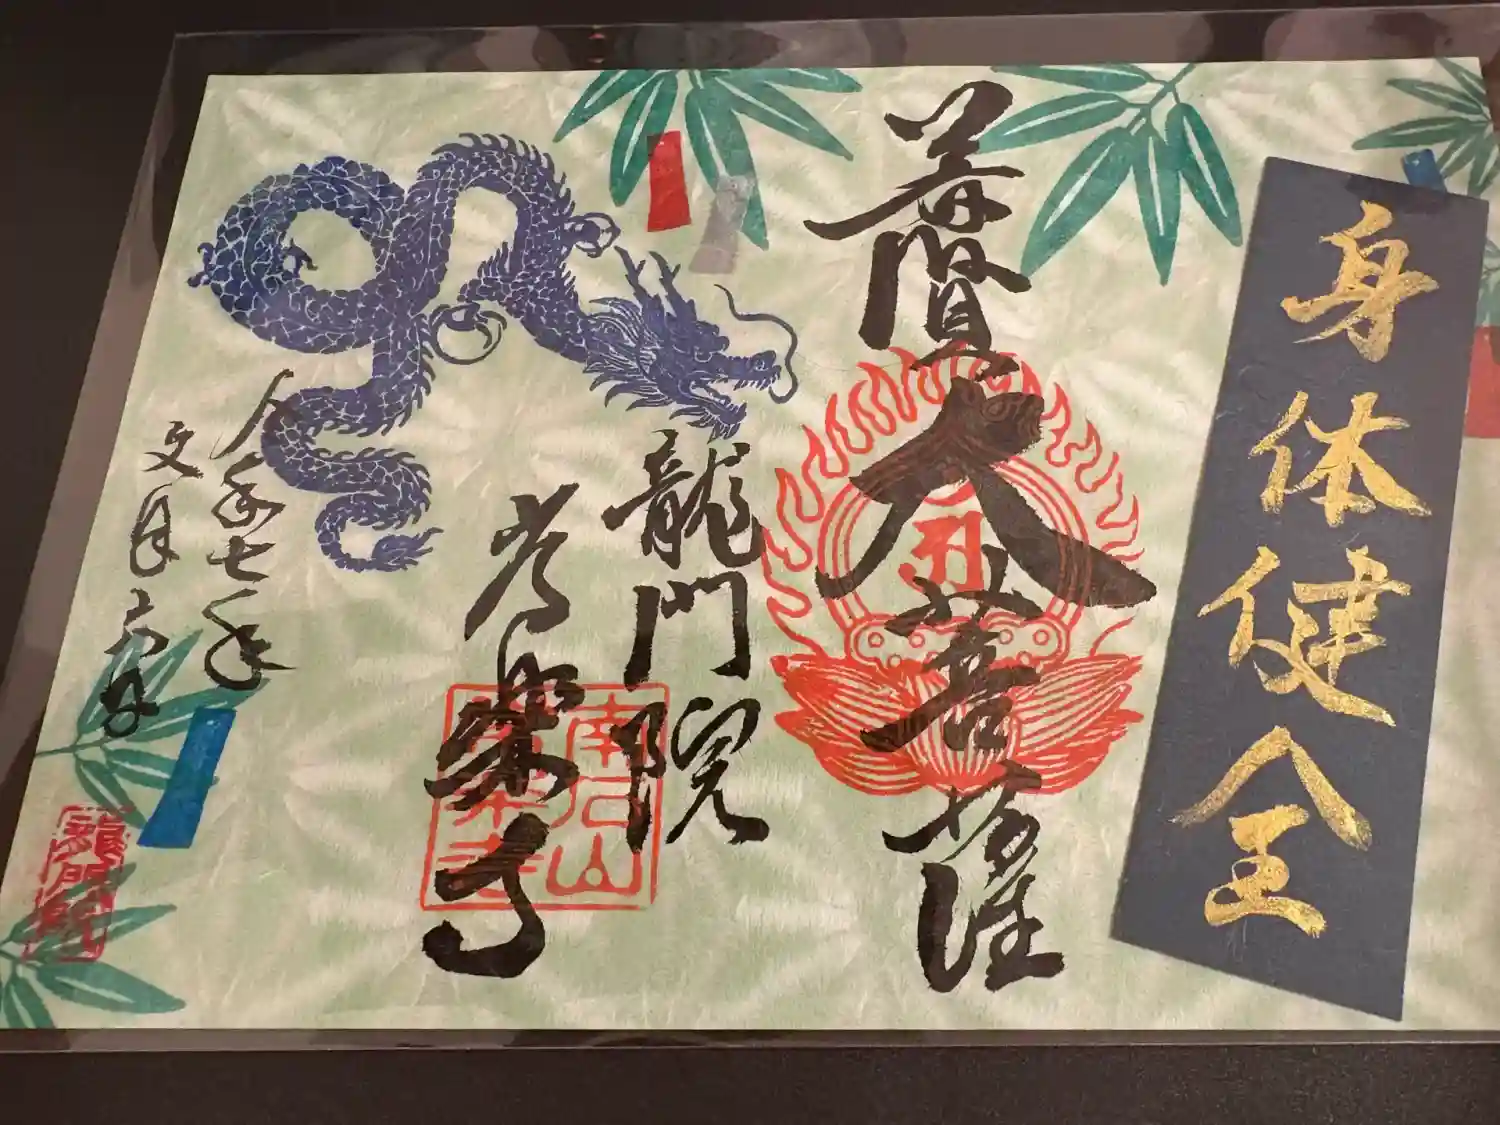 身体健全
普賢大菩薩
龍門院
常樂寺
南石山
常樂寺
令和七年
文月
龍門院